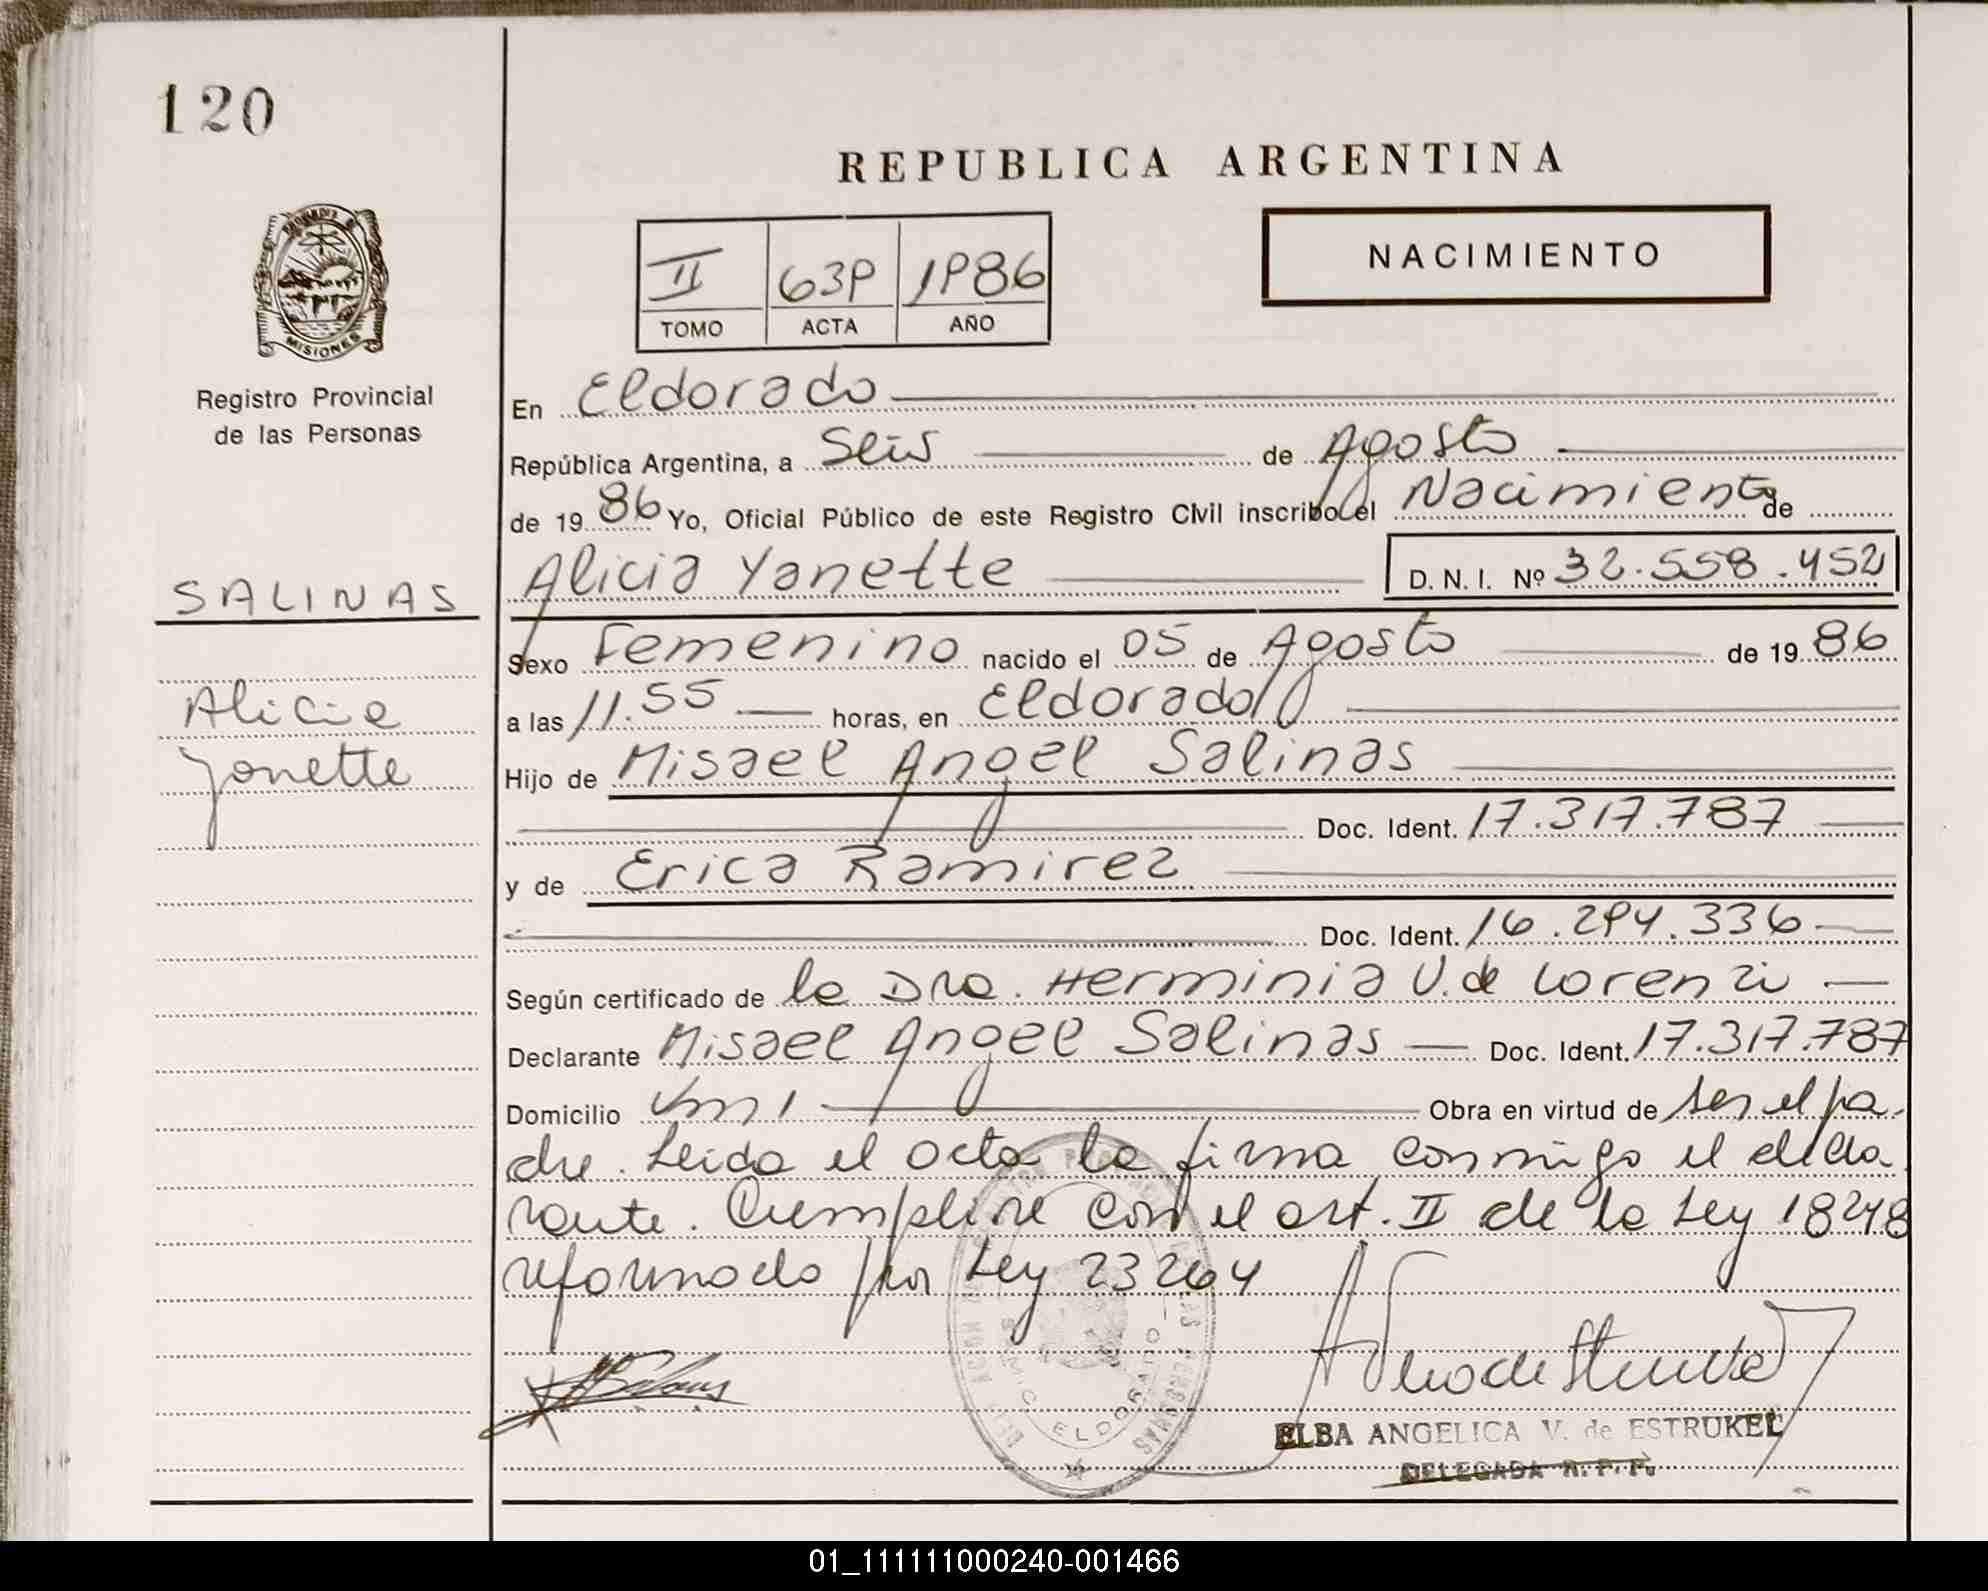 120
REPUBLICA ARGENTINA
NACIMIENTO
II 639 1986
TOMO ACTA AÑO
MISIONES
Registro Provincial
de las Personas
En Eldorado
República Argentina, a Seis de Agosto
de 1986 Yo, Oficial Público de este Registro Civil inscribo el Nacimiento de
Alicia Yanette D. N. I. Nº 32.558.452
SALINAS
Alicia
Yanette
Sexo Femenino nacido el 05 de Agosto de 1986
a las 11.55 horas, en Eldorado
Hijo de Misael Angel Salinas
Doc. Ident. 17.317.787
y de Erica Ramirez
Doc. Ident. 16.294.336
Según certificado de la Dra. Herminia V. de Lorenzi
Declarante Misael Angel Salinas Doc. Ident. 17.317.787
Domicilio Km 1 Obra en virtud de ser el pa-
dre. Leida el acta la firma conmigo el decla-
rante. Cumpliré con el art. II de la Ley 18248
reformado por Ley 23264
ELDORADO
ELBA ANGELICA V. de ESTRUKEL
DELEGADA R. P. P.
01_111111000240-001466